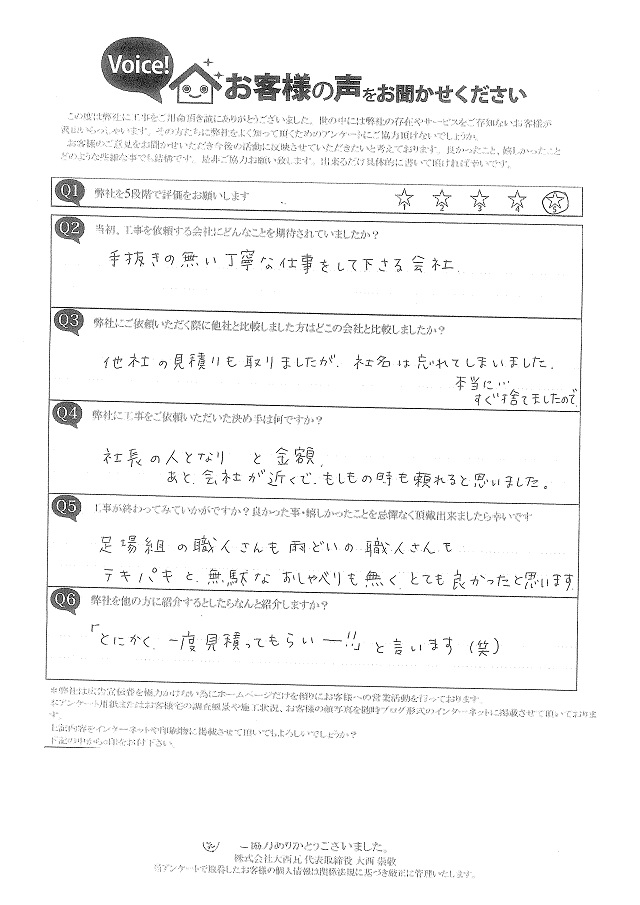 Voice!
お客様の声をお聞かせください
この度は弊社に工事をご用命頂き誠にありがとうございました。世の中には弊社の存在やサービスをご存知ないお客様が
沢山いらっしゃいます。その方たちに弊社をよく知って頂くためのアンケートにご協力頂けないでしょうか。
お客様のご意見をお聞かせいただき今後の活動に反映させていただきたいと考えております。良かったこと、嬉しかったこと
どのような些細な事でも結構です。是非ご協力お願い致します。出来るだけ具体的に書いて頂ければ幸いです。
Q1 弊社を5段階で評価をお願いします
1 2 3 4 5
Q2 当初、工事を依頼する会社にどんなことを期待されていましたか？
手抜きの無い丁寧な仕事をして下さる会社.
Q3 弊社にご依頼いただく際に他社と比較しました方はどこの会社と比較しましたか？
他社の見積りも取りましたが、社名は忘れてしまいました.
本当に…
すぐ捨てましたので.
Q4 弊社に工事をご依頼いただいた決め手は何ですか？
社長の人となり と 金額.
あと、会社が近くで、もしもの時も頼れると思いました。
Q5 工事が終わってみていかがですか？良かった事・嬉しかったことを忌憚なく頂戴出来ましたら幸いです
足場組の職人さんも雨どいの職人さんも
テキパキと、無駄なおしゃべりも無く、とても良かったと思います.
Q6 弊社を他の方に紹介するとしたらなんと紹介しますか？
「とにかく、一度見積ってもらいー!!」と言います（笑）
＊弊社は広告宣伝費を極力かけない為にホームページだけを頼りにお客様への営業活動を行っております。
＊アンケート用紙またはお客様宅の調査風景や施工状況、お客様の顔写真を随時ブログ形式のインターネットに掲載させて頂いておりま
す。
上記内容をインターネットや印刷物に掲載させて頂いてもよろしいでしょうか？
下記の中から○印をお付け下さい。
ご協力ありがとうございました。
株式会社大西瓦 代表取締役 大西 崇敬
当アンケートで取得したお客様の個人情報は関係法規に基づき厳正に管理いたします。